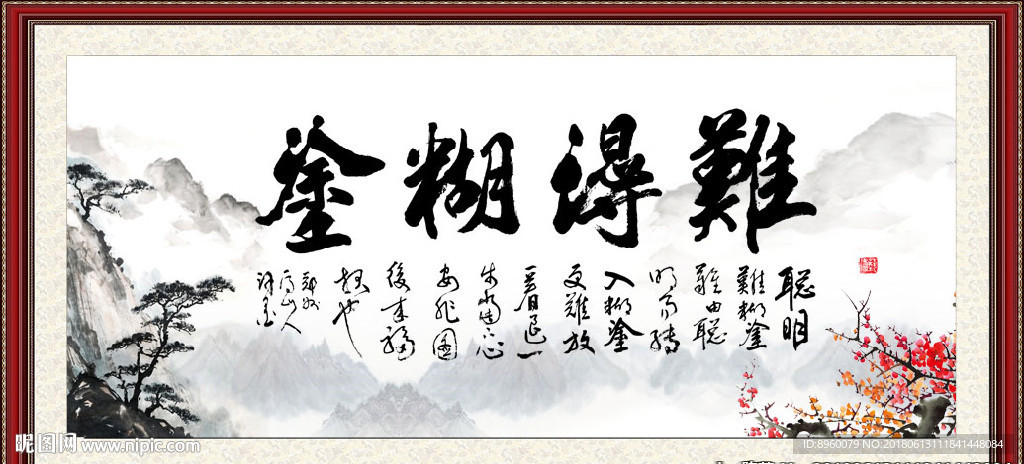 難得糊塗
聰明
難糊塗
難由聰
明而轉
入糊塗
更難放
一着退一
步當下心
安非圖
後來福
報也
昵图网 www.nipic.com
ID:8960079 NO:20180613111841448084